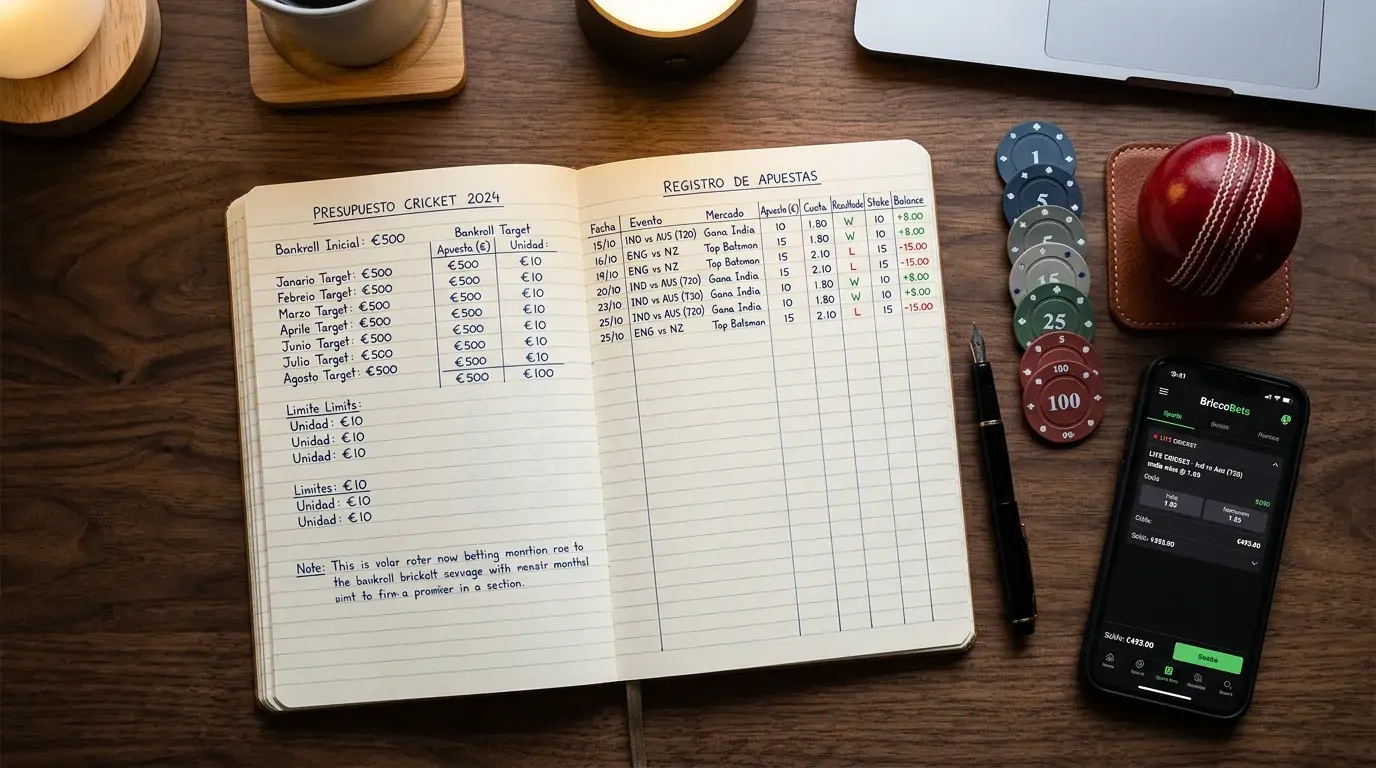 PRESUPUESTO CRICKET 2024
Bankroll Inicial: €500
Bankroll Target
Apuesta (€) Unidad:
€500 €10
Janario Target: €500 €500 €10
Febreio Target: €500 €500 €10
Marzo Target: €500 €500 €10
Aprile Target: €500 €500 €10
Junio Target: €500 €500 €10
Julio Target: €500 €500 €10
Agosto Target: €500 €500 €100
Limite Limits:
Unidad: €10
Unidad: €10
Unidad: €10
Limites: €10
Unidad: €10
Unidad: €10
Note: This is volar roter now betting monrtion roe to
the bankroll brickolt sevvage with menair monthsl
to firm a promker in a section.
REGISTRO DE APUESTAS
Facha Evento Mercado Apuesto (€) Cuota Stake Balance
15/10 IND vs AUS (T20) Gana India 10 1.80 W 10 +8.00
16/10 ENG vs NZ Top Batsman 15 1.80 W 10 +8.00
19/10 ENG vs NZ Top Batcman 15 2.10 L 15 -15.00
20/10 IND vs AUS (720) Gana India 15 2.10 L 15 -15.00
23/10 IND vs AUS (T30) Gana India 10 1.80 W 10 +8.00
25/10 IND vs AUS (720) Gana India 10 1.80 W 10 +8.00
25/10 ENG vs NZ Top Balsman 15 2.10 L 15 -15.00
1
5
5
15
25
5
100
100
BriccoBets
Sports
CRICKET
1.80 1.85
€493.00
€493.00